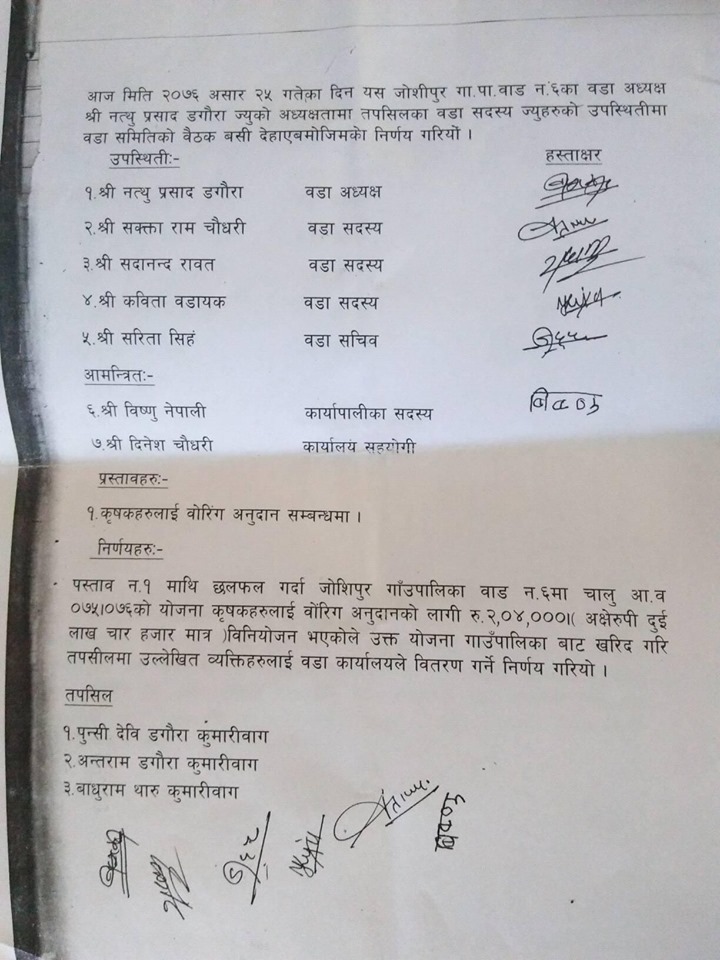 आज मिति २०७६ असार २५ गतेका दिन यस जोशीपुर गा.पा.वाड न.६का वडा अध्यक्ष
श्री नत्थु प्रसाद डगौरा ज्युको अध्यक्षतामा तपसिलका वडा सदस्य ज्युहरुको उपस्थितीमा
वडा समितिको बैठक बसी देहाएबमोजिमको निर्णय गरियो ।
उपस्थिती:- हस्ताक्षर
१.श्री नत्थु प्रसाद डगौरा वडा अध्यक्ष
२.श्री सक्ता राम चौधरी वडा सदस्य
३.श्री सदानन्द रावत वडा सदस्य
४.श्री कविता वडायक वडा सदस्य
५.श्री सरिता सिहं वडा सचिव
आमन्त्रित:-
६.श्री विष्णु नेपाली कार्यापालीका सदस्य
७.श्री दिनेश चौधरी कार्यालय सहयोगी
प्रस्तावहरु:-
१.कृषकहरुलाई वोरिंग अनुदान सम्बन्धमा ।
निर्णयहरु:-
पस्ताव न.१ माथि छलफल गर्दा जोशिपुर गाँउपालिका वाड न.६मा चालु आ.व
०७५।०७६को योजना कृषकहरुलाई वोंरिंग अनुदानको लागी रु.२,०४,०००।( अक्षेरुपी दुई
लाख चार हजार मात्र )विनियोजन भएकोले उक्त योजना गाउँपालिका बाट खरिद गरि
तपसीलमा उल्लेखित व्यक्तिहरुलाई वडा कार्यालयले वितरण गर्ने निर्णय गरियो ।
तपसिल
१.पुन्सी देवि डगौरा कुमारीवाग
२.अन्तराम डगौरा कुमारीवाग
३.बाधुराम थारु कुमारीवाग